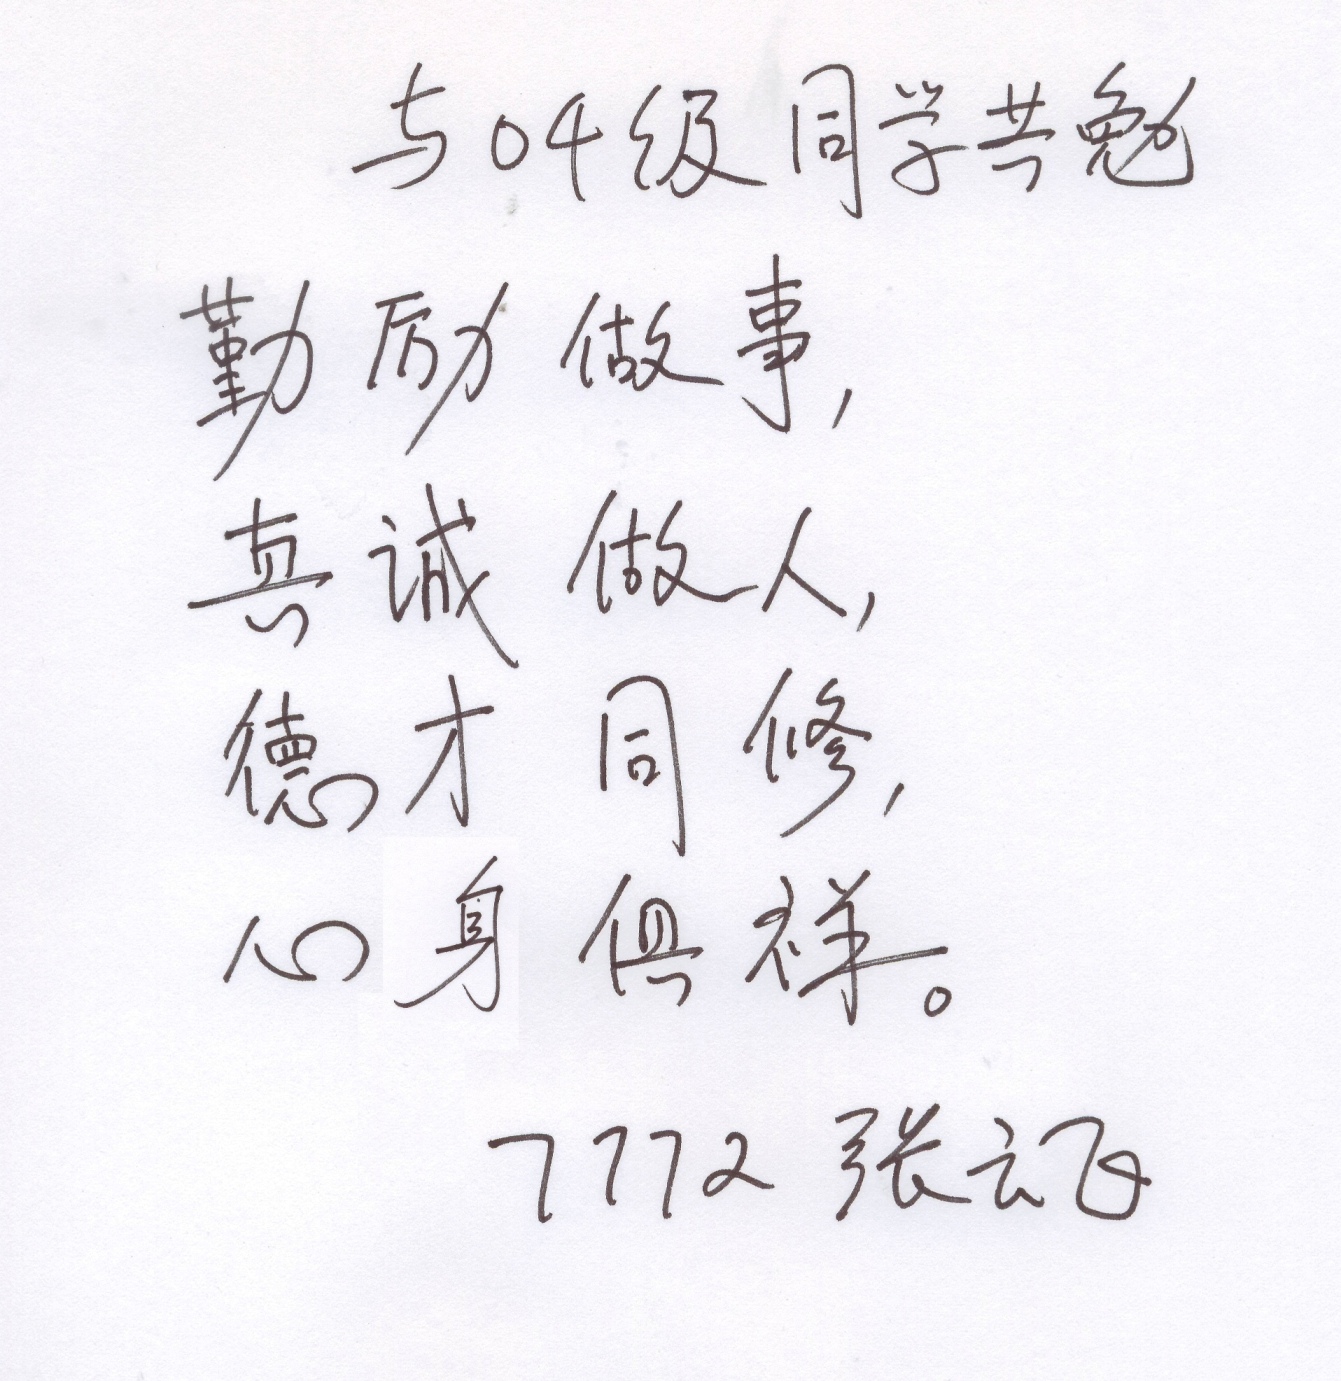 与04级同学共勉
勤励做事,
真诚做人,
德才同修,
心身俱祥。
7772 张云飞